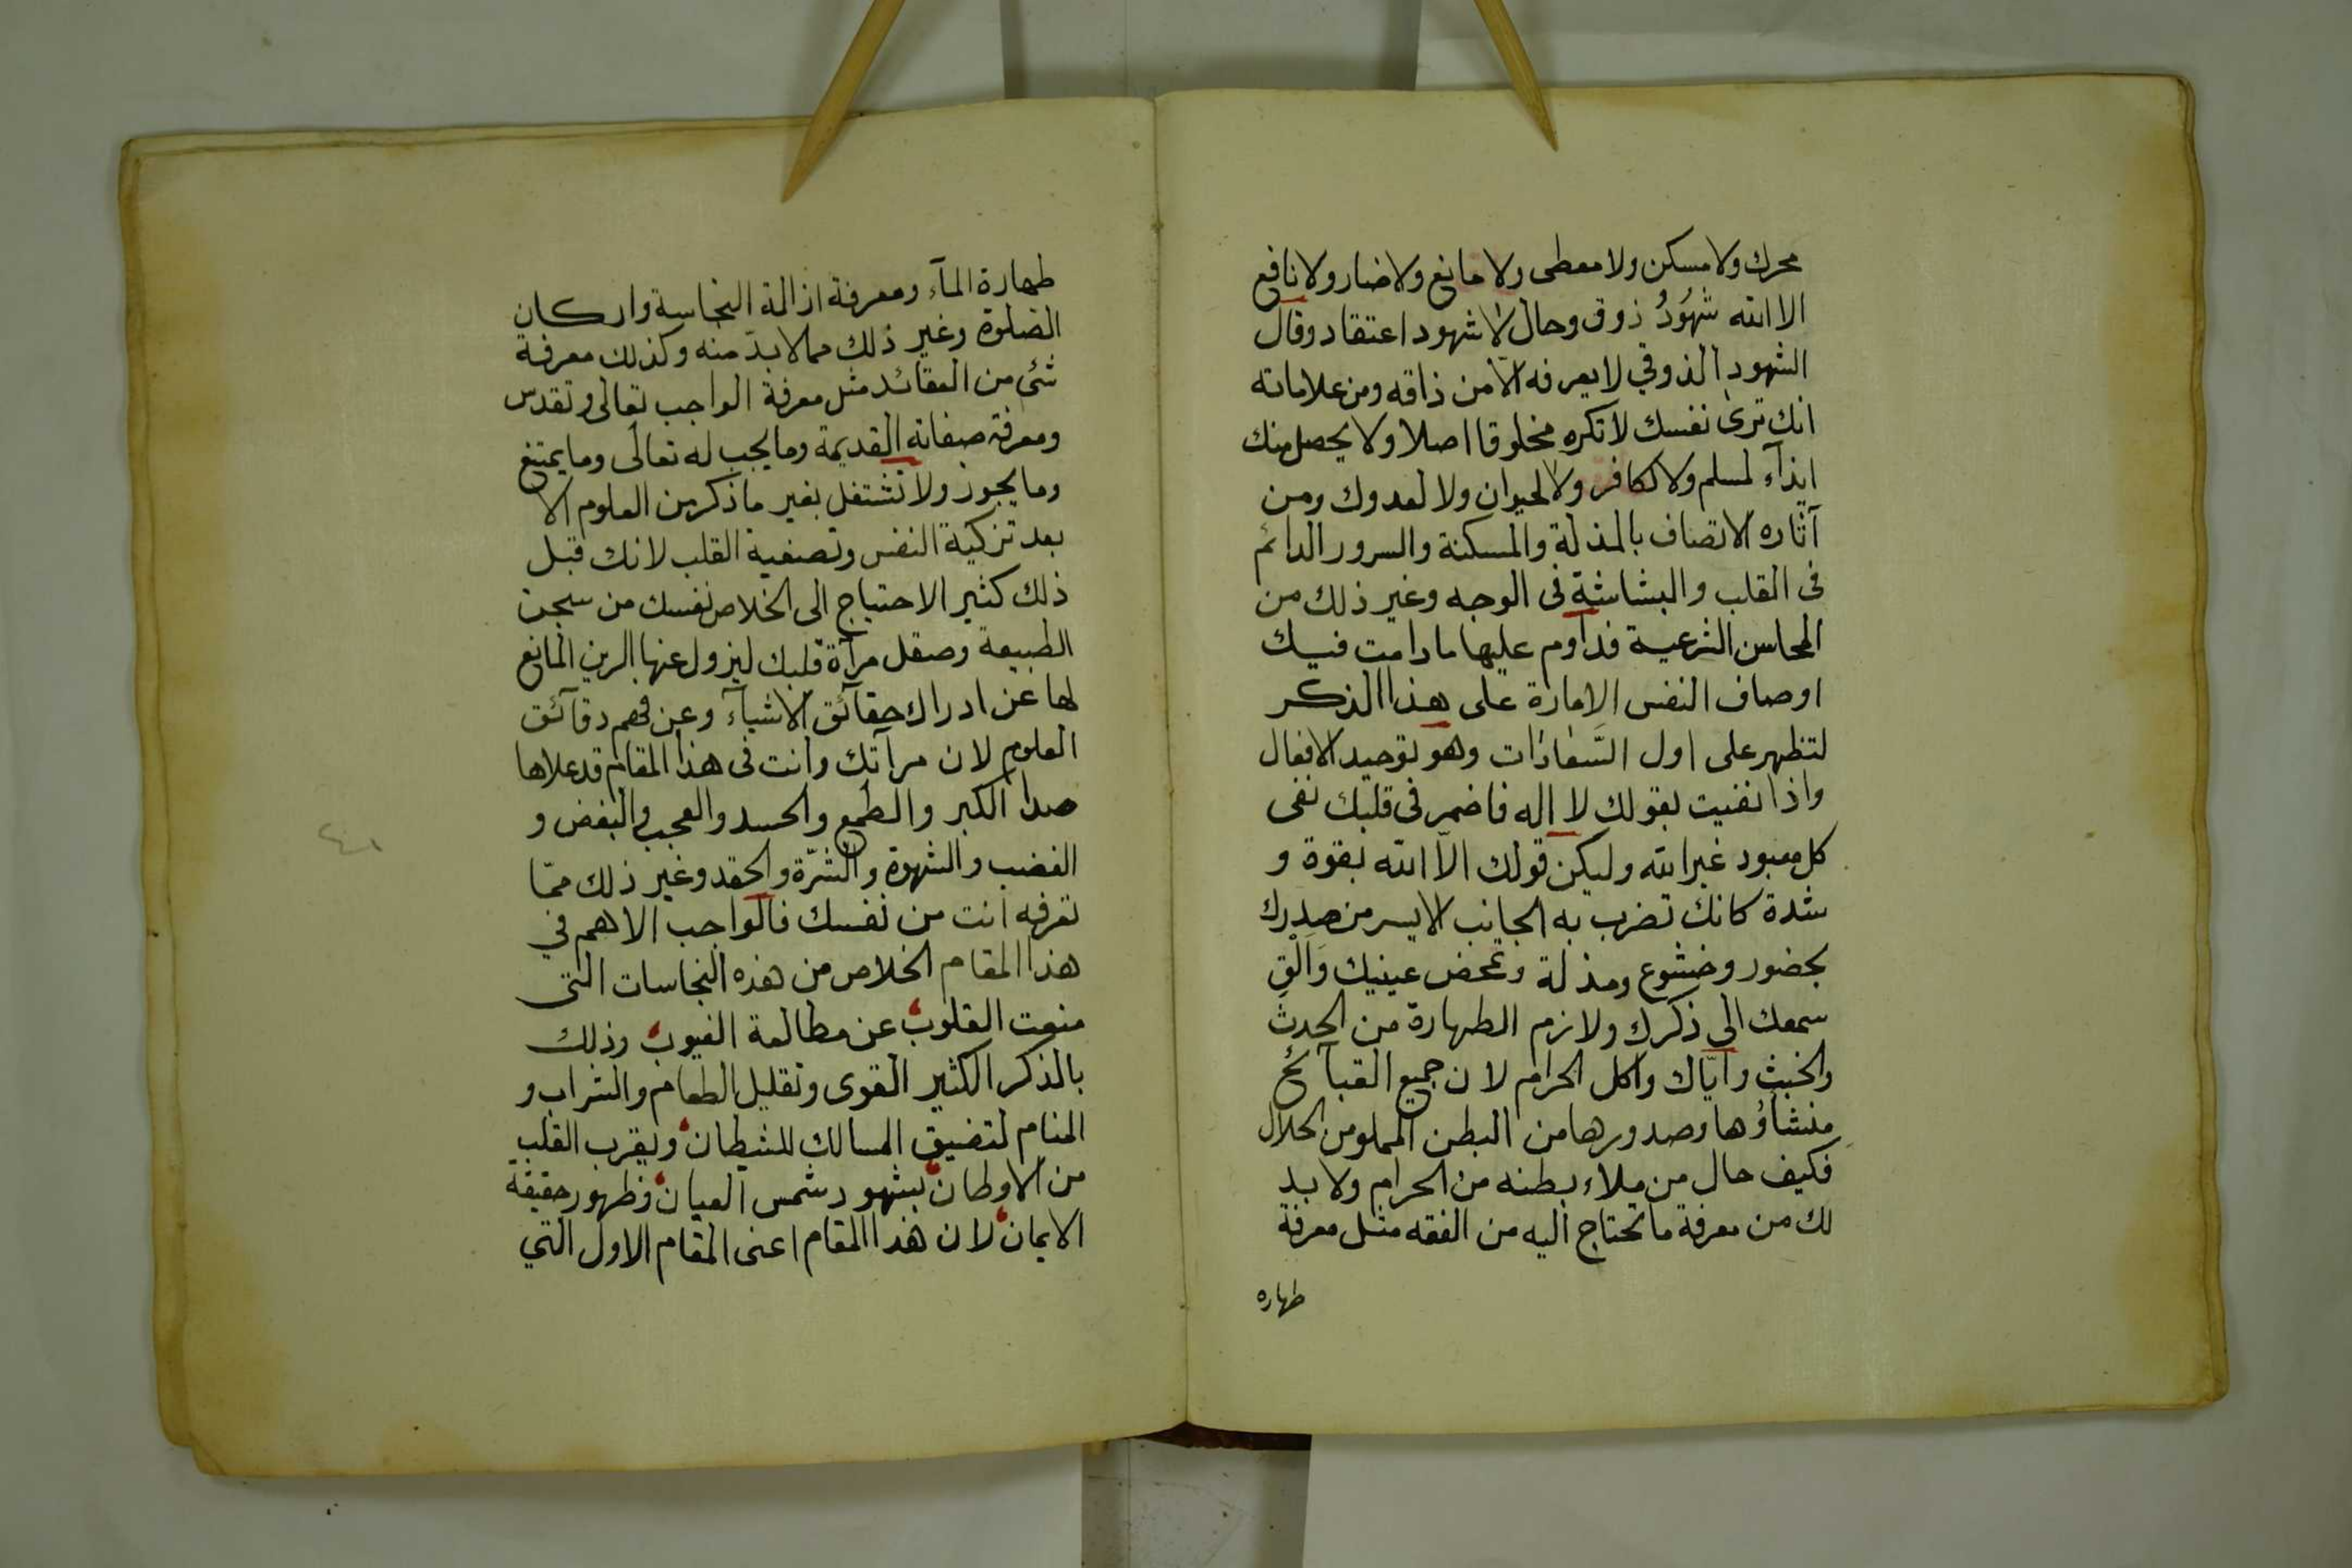 محرك ولا مسكن ولا معطى ولا مانع ولا ضار ولا نافع
الا الله شهُودُ ذوق وحال لا شهود اعتقاد وقال
الشهود الذوقي لا يعرفه الّا من ذاقه ومن علاماته
انك ترى نفسك لا تكره مخلوقا اصلا ولا يحصل منك
ايذآء لمسلم ولا لكافر ولا لحيوان ولا لعدوك ومن
آثاره الاتصاف بالمذلة والمسكنة والسرور الدائم
فى القلب والبشاشة فى الوجه وغير ذلك من
المحاسن الشرعية فداوم عليها ما دامت فيك
اوصاف النفس الامارة على هذا الذكر
لتظهر على اول السَّعادات وهو توحيد الافعال
واذا نفيت بقولك لا اله فاضمر فى قلبك نفى
كل معبود غير الله وليكن قولك الّا الله بقوة و
شدة كانك تضرب به الجانب الايسر من صدرك
بحضور وخشوع ومذلة وتمحض عينيك وَاَلْقِ
سمعك الى ذكرك ولازم الطهارة من الحدث
والخبث وايّاك واكل الحرام لان جميع القبآئح
منشاؤها وصدورها من البطن المملو من الحلال
فكيف حال من ملاء بطنه من الحرام ولا بد
لك من معرفة ما تحتاج اليه من الفقه مثل معرفة
طهاره
طهارة المآء ومعرفة ازالة النجاسة واركان
الصلوة وغير ذلك مما لا بدّ منه وكذلك معرفة
شئ من العقائد مثل معرفة الواجب تعالى وتقدس
ومعرفة صفاته القديمة وما يجب له تعالى وما يمتنع
وما يجوز ولا تشتغل بغير ما ذكر من العلوم الا
بعد تزكية النفس وتصفية القلب لانك قبل
ذلك كثير الاحتياج الى الخلاص نفسك من سجن
الطبيعة وصقل مرآة قلبك ليزول عنها الرين المانع
لها عن ادراك حقآئق الاشيآء وعن فهم دقآئق
العلوم لان مرآتك وانت فى هذا المقام قد علاها
صدا الكبر والطمع والحسد والعجب والبغض و
الغضب والشهوة والشرّة والحقد وغير ذلك ممّا
تعرفه انت من نفسك فالواجب الاهم في
هذا المقام الخلاص من هذه النجاسات التى
منعت القلوب عن مطالعة الغيوب وذلك
بالذكر الكثير القوى وتقليل الطعام والشراب و
المنام لتضيق المسالك للشيطان ويقرب القلب
من الاوطان بشهود شمس العيان وظهور حقيقة
الايمان لان هذا المقام اعنى المقام الاول التي